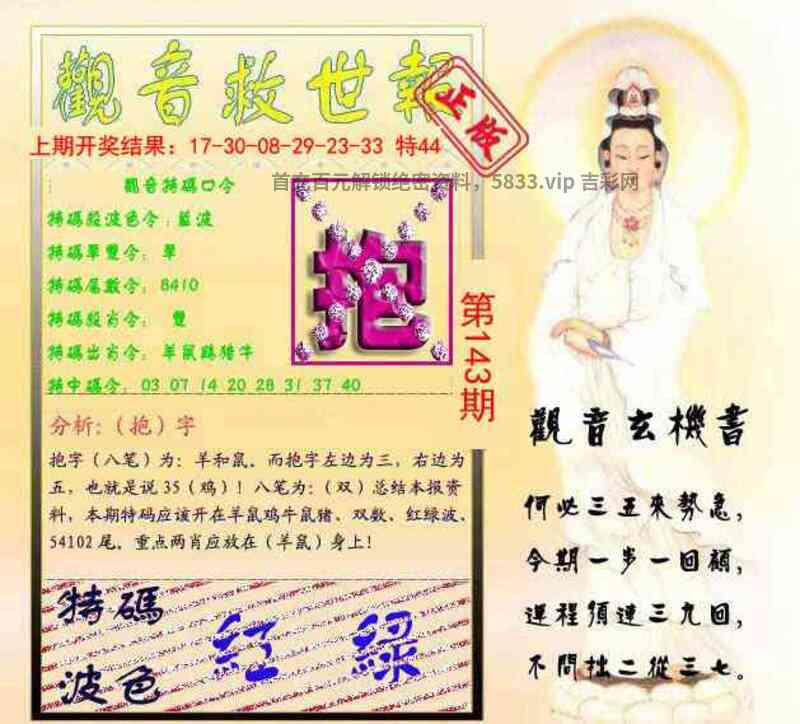 觀音救世報
正版
上期开奖结果：17-30-08-29-23-33 特44
首充百元解锁绝密资料，5833.vip 吉彩网
觀音特碼口令
特碼殺波色令：藍波
特碼單雙令：單
特碼尾數令：8410
特碼殺肖令： 雙
特碼出肖令：羊鼠鷄猪牛
特中碼令：03 07 14 20 28 31 37 40
抱
第143期
分析：（抱）字
抱字（八笔）为：羊和鼠．而抱字左边为三，右边为
五，也就是说35（鸡）！八笔为：（双）总结本报资
料，本期特码应该开在羊鼠鸡牛鼠猪、双数、红绿波、
54102尾．重点两肖应放在（羊鼠）身上！
特碼
波色
紅 綠
觀音玄機書
何必三五來勢急，
今期一步一回顧，
運程須連三九回，
不問拙二從三七。